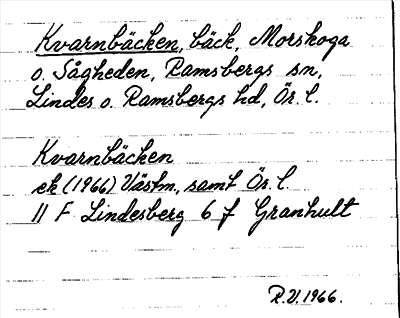 Kvarnbäcken, bäck, Morskoga
o. Sågheden, Ramsbergs sn,
Lindes o. Ramsbergs hd, Ör. l.
Kvarnbäcken
ek (1966) Västm, samt Ör. l.
11 F Lindesberg 6 f Granhult
R.V. 1966.